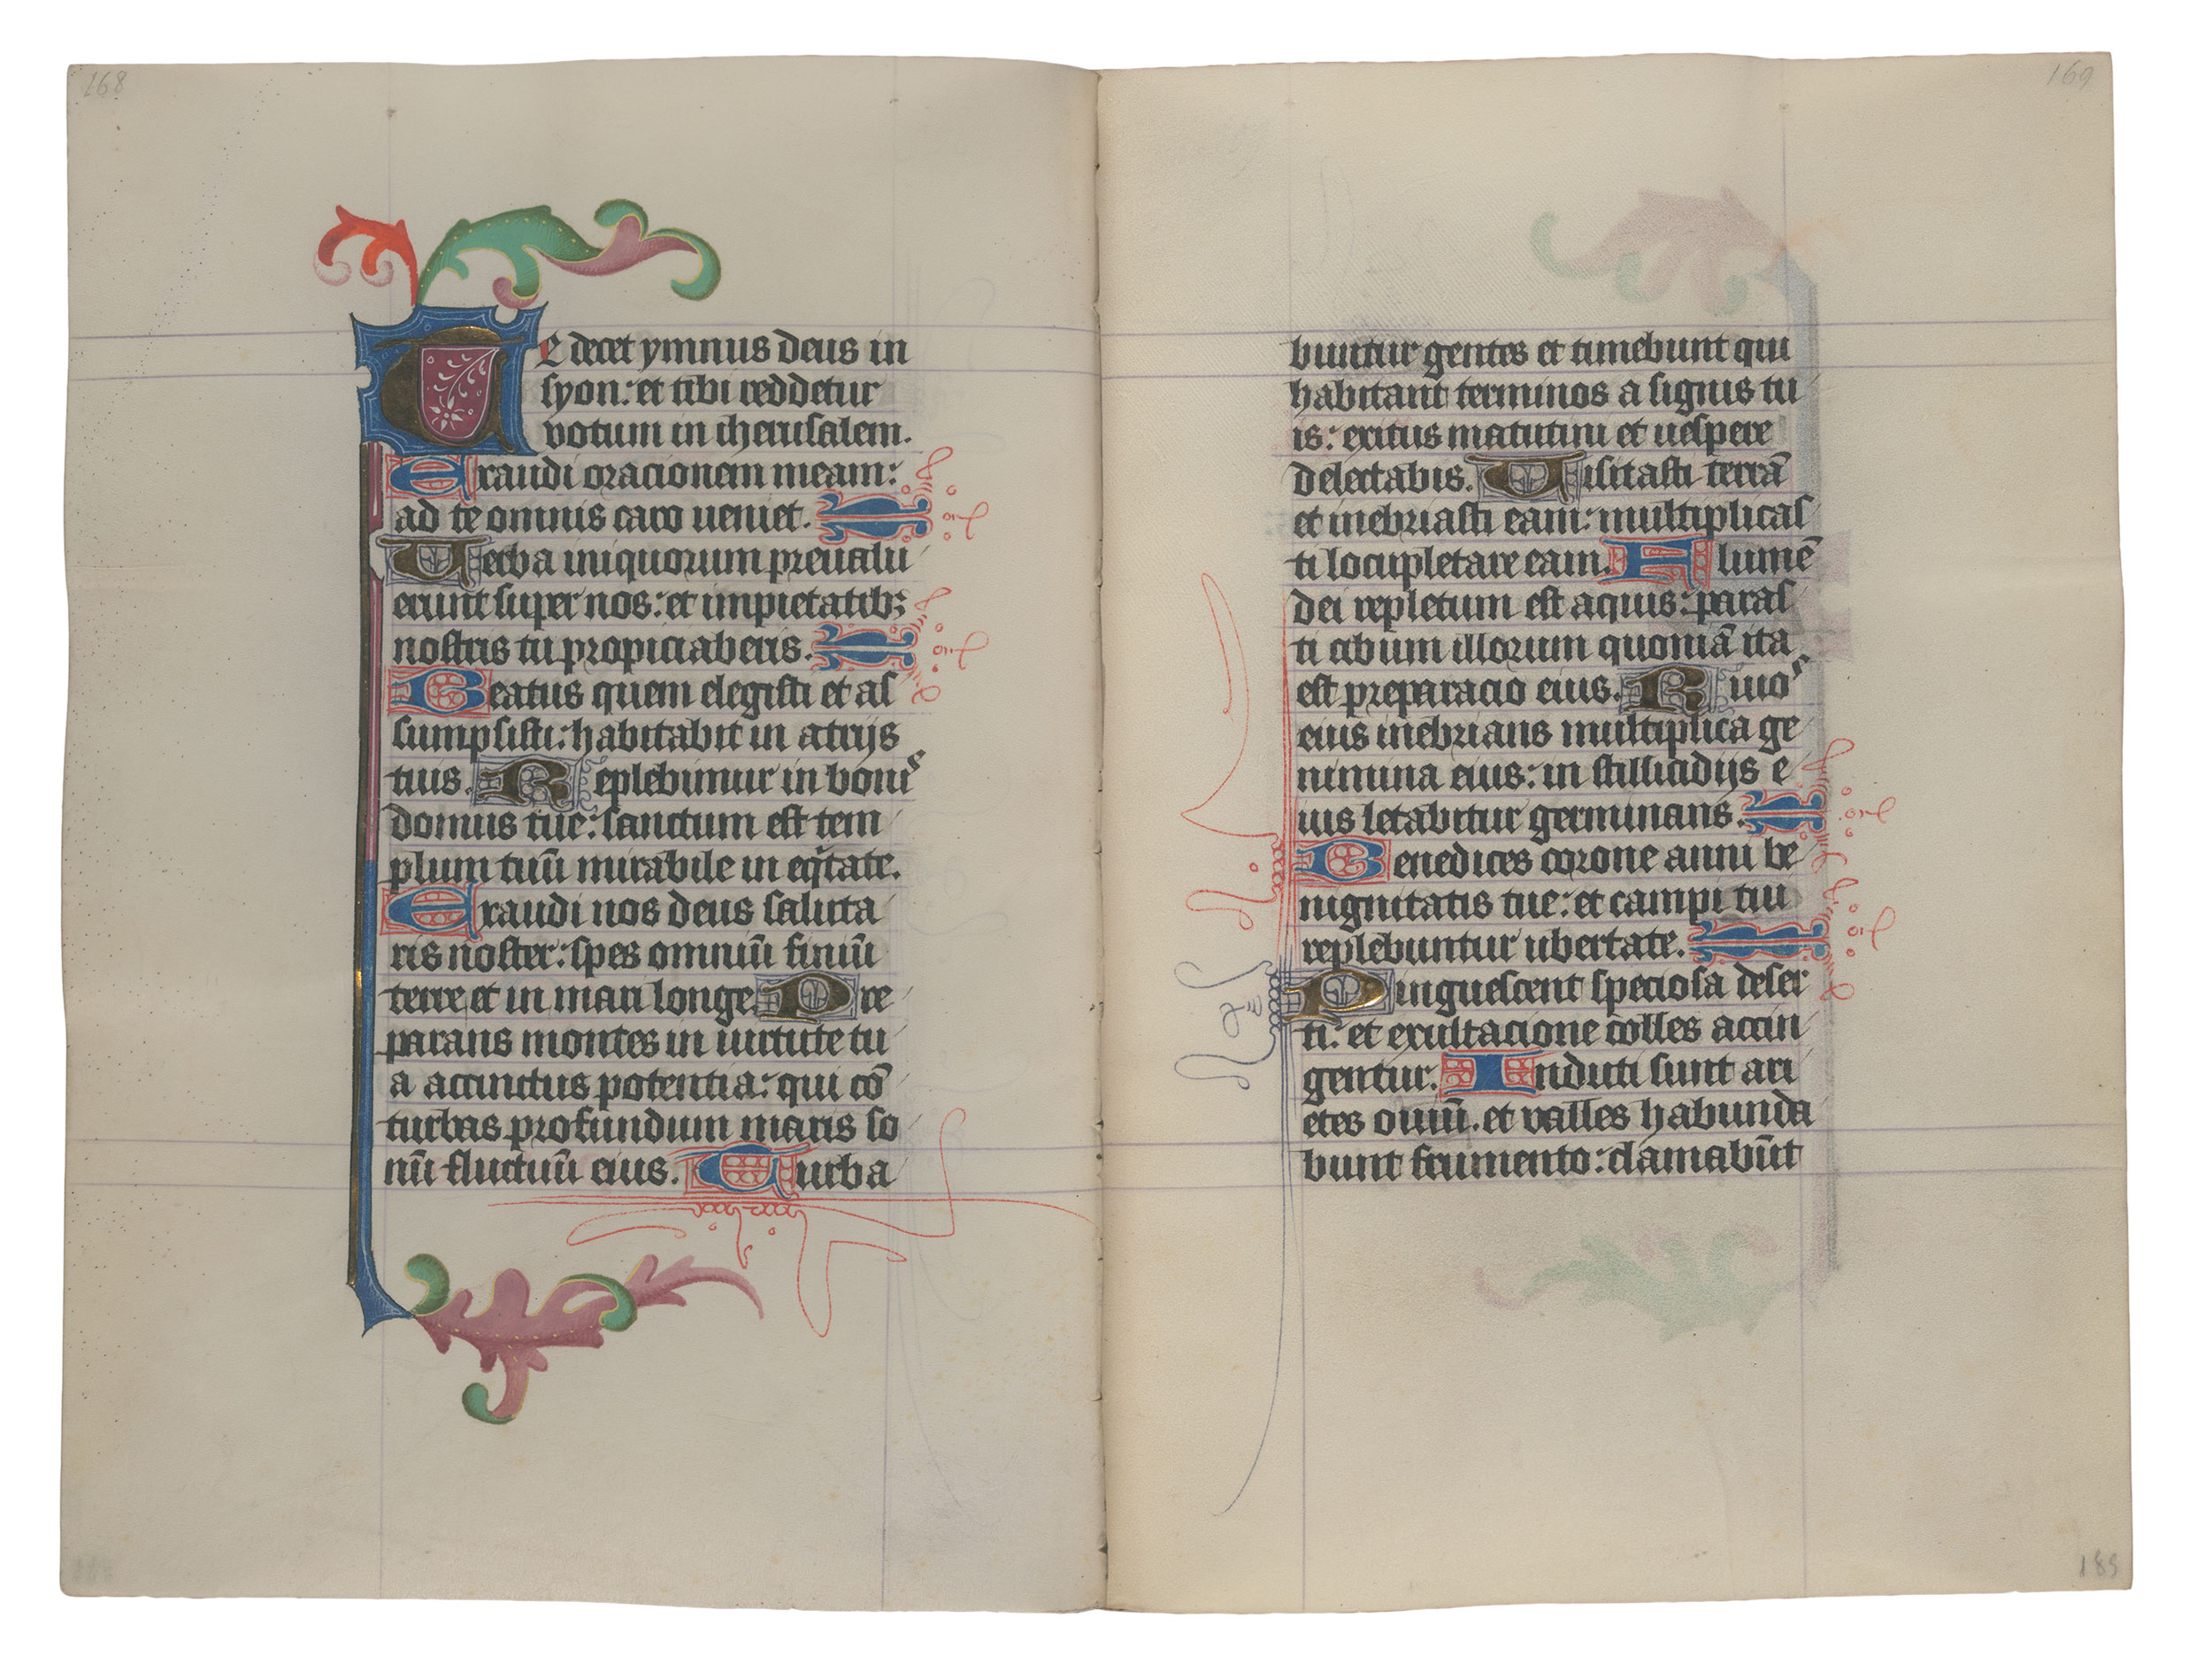 168
Te decet ymnus deus in
syon: et tibi reddetur
votum in iherusalem.
Exaudi oracionem meam:
ad te omnis caro ueniet.
Uerba iniquorum preualu
erunt super nos: et impietatibꝫ
nostris tu propiciaberis.
Beatus quem elegisti et as
sumpsisti: habitabit in atrijs
tuis. Replebimur in bonis
domus tue: sanctum est tem
plum tuū mirabile in eqͥtate.
Exaudi nos deus saluta
ris noster: spes omniū finiū
terre et in mari longe Pre
parans montes in uirtute tu
a accinctus potentia: qui cō
turbas profundum maris so
nū fluctuū eius. Turba
169
buntur gentes et timebunt qui
habitant terminos a signis tu
is: exitus matutini et uespere
delectabis. Uisitasti terrā
et inebriasti eam: multiplicas
ti locupletare eam. Flumē
dei repletum est aquis: paras
ti cibum illorum quoniā ita
est preparacio eius. Riuos
eius inebrians multiplica ge
nimina eius: in stillicidijs e
ius letabitur germinans.
Benedices corone anni be
nignitatis tue: et campi tui
replebuntur ubertate.
Pinguescent speciosa deser
ti: et exultacione colles accin
gentur. Induti sunt ari
etes ouiū. et valles habunda
bunt frumento: clamabūt
185